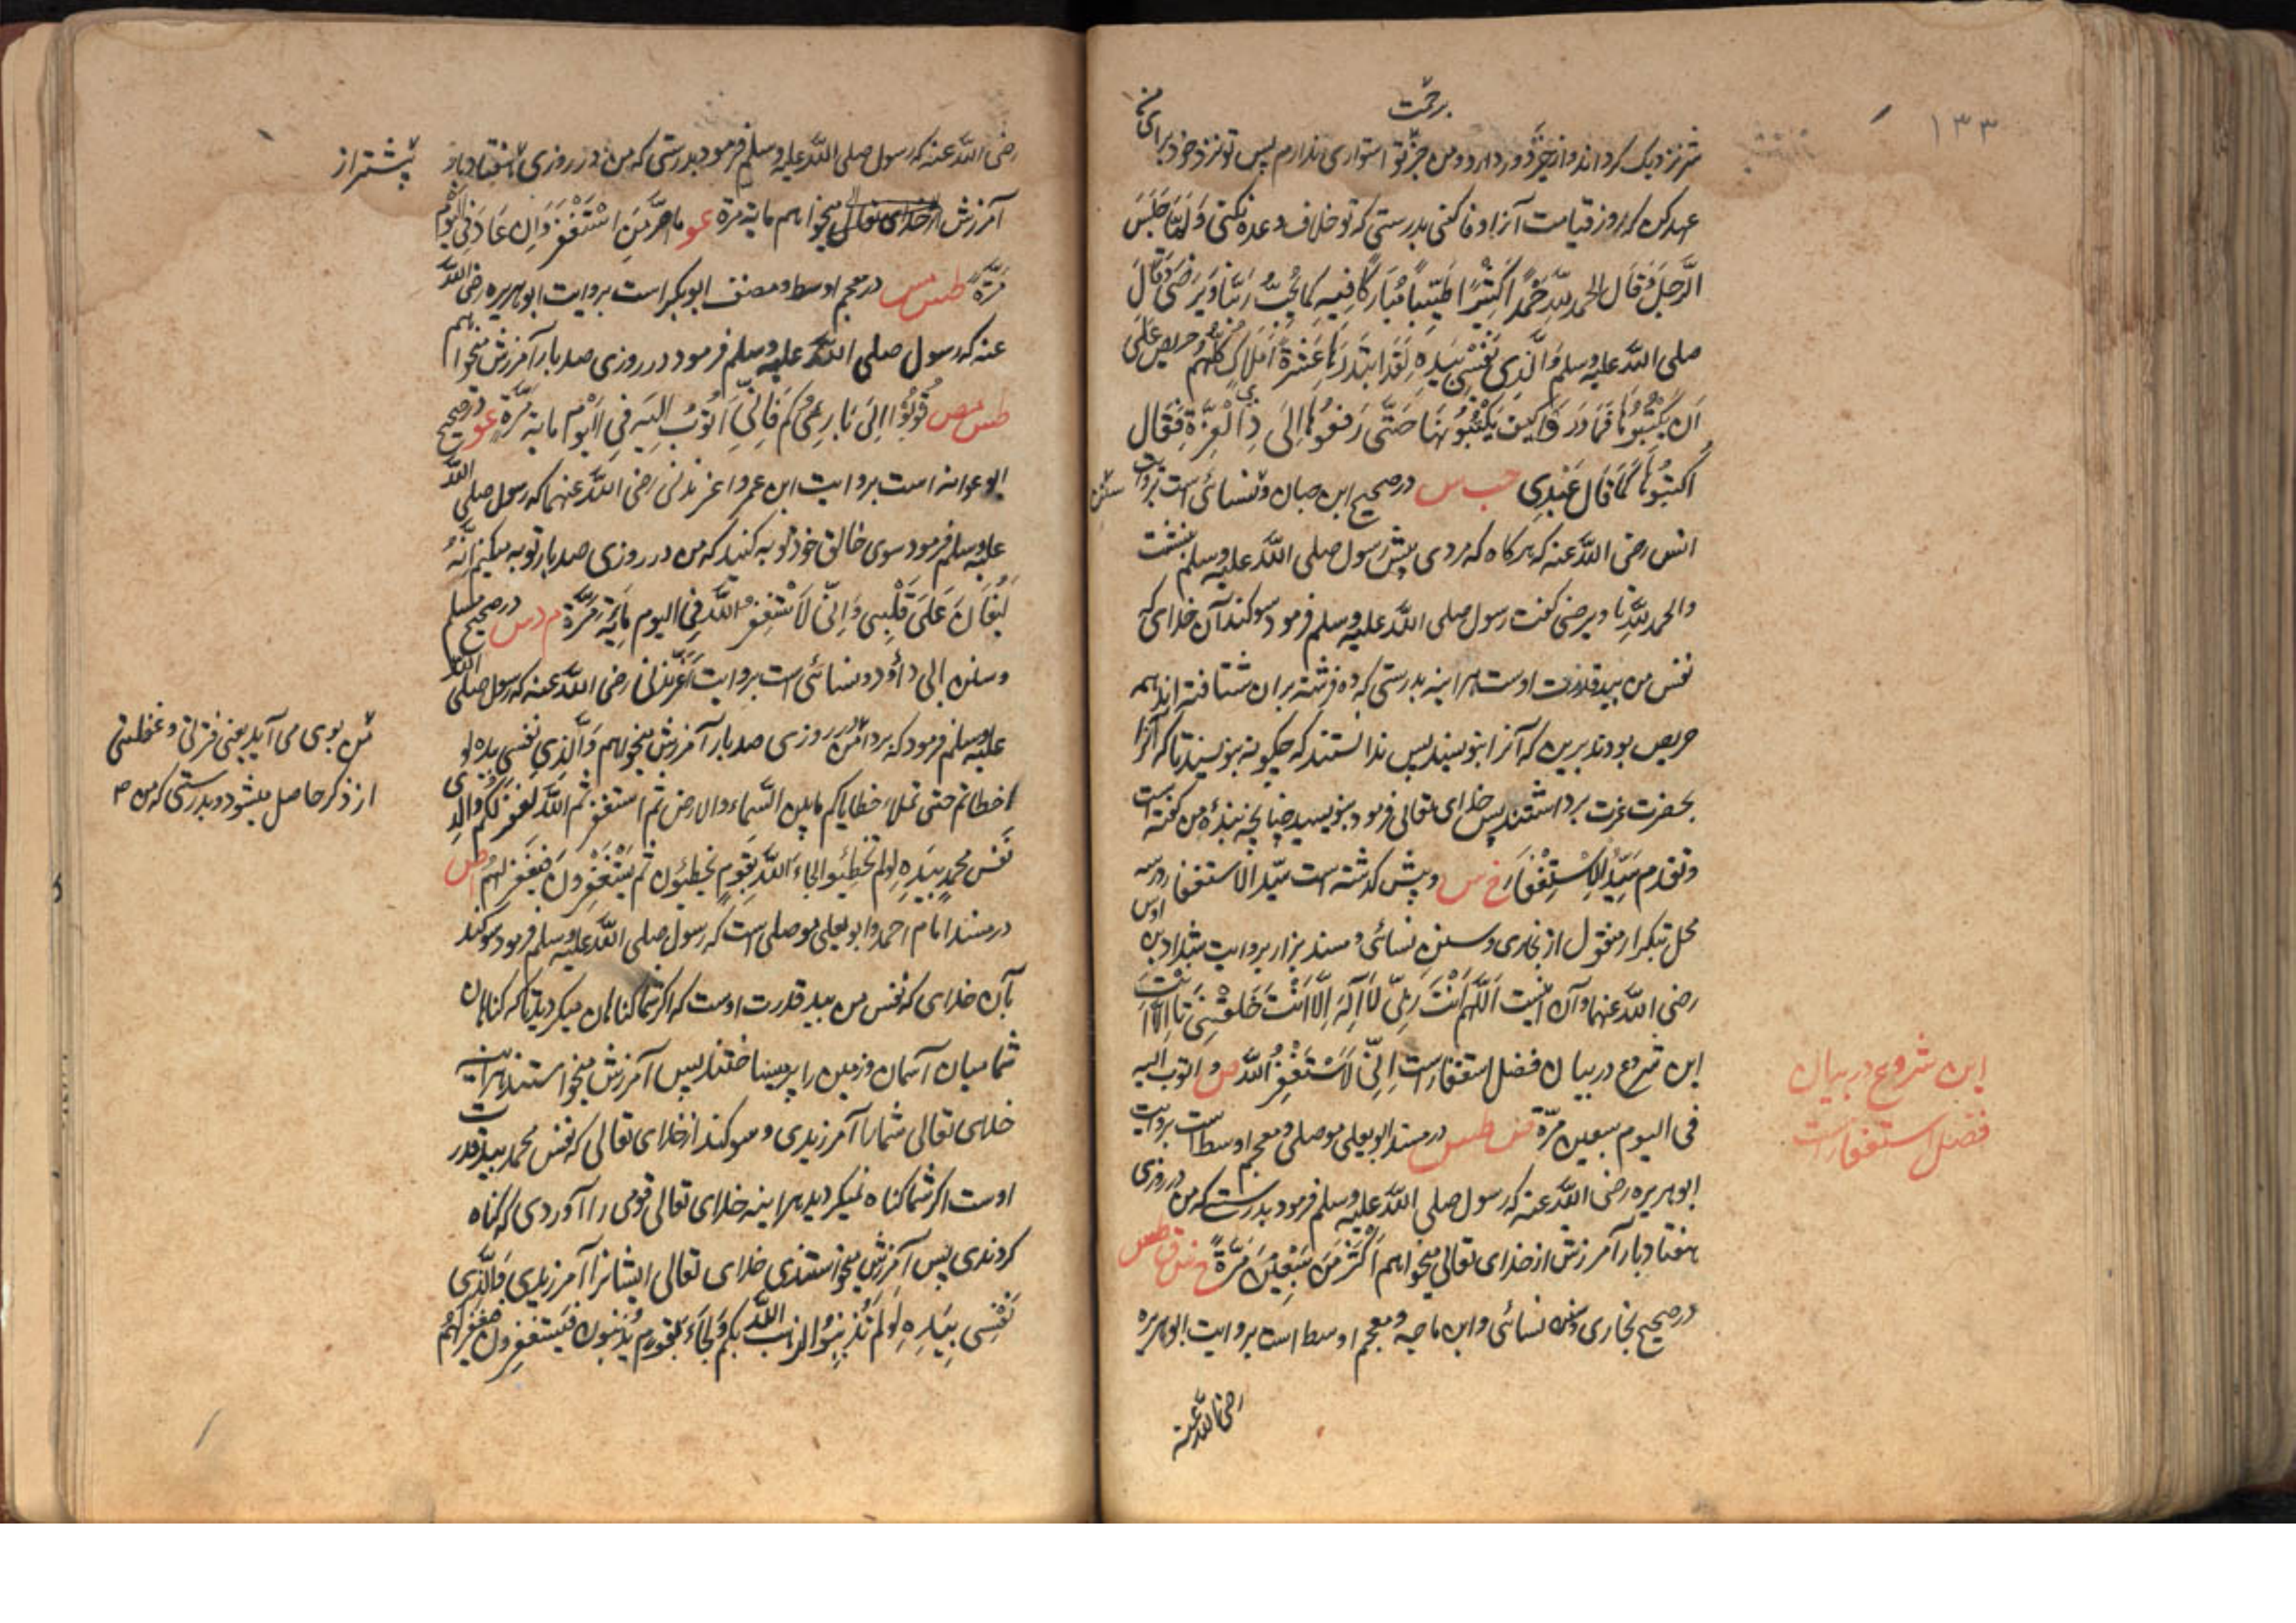 ۱۳۳
برحمت
شر نزدیک کرداند و از خیر دور دارد و من جز بتو استواری ندارم پس تو نزد خود برای من
عهد کن که روز قیامت آنرا وفا کنی بدرستی که تو خلاف وعده نکنی وَلَمَّا جَلَسَ
الرَّجُلُ وَقَالَ الحمد للّٰه حَمْدًا كَثِيْرًا طَيِّبًا مُبَارَكًا فِيْهِ كَمَا يُحِبُّ رَبُّنَا وَيَرْضَى وَقَالَ
صلی اللّٰه علیه وسلم وَالَّذِي نَفْسِي بِيَدِهِ لَقَدِ ابْتَدَرَهَا عَشَرَةُ أَمْلَاكٍ كُلُّهُمْ حريص عَلَى
أَنْ يَكْتُبُوهَا فَمَا دَرَوْا كيف يَكْتُبُونَهَا حَتَّى رَفَعُوهَا إِلَى ذِي الْعِزَّةِ فَقَال
اُكْتُبُوهَا كَمَا قَالَ عَبْدِي حب س در صحیح ابن حبان و سنن نسائی است بروایت
انس رضی اللّٰه عنه که هرکاه که مردی پیش رسول صلی اللّٰه علیه وسلم بنشست
والحمد للّٰه تا ویرضی کفت رسول صلی اللّٰه علیه وسلم فرمود سوکند آن خدای که
نفس من بید قدرت اوست هراینه بدرستی که ده فرشته بران شتافته اند همه
حریص بودند برین که آنرا بنویسند پس ندانستند که چکونه بنویسند تا که آنرا
بحضرت عزت برداشتند پس خدای تعالی فرمود بنویسید چنانچه بندهٔ من کفته است
وتقدم سَيِّدُ الِاسْتِغْفَارِ خ س و پیش کذشته است سیّد الاستغفار در سه
محل بتکرار منقول از بخاری و سنن نسائی و مسند بزار بروایت شداد بن اوس
رضی اللّٰه عنهما و آن اینست اَللّٰهُمَّ اَنْتَ رَبِّي لَا اِلٰهَ اِلَّا اَنْتَ خَلَقْتَنِي تا اِلَّا اَنْتَ
این شروع در بیان فضل استغفار است اِنِّي لَاَسْتَغْفِرُ اللّٰهَ ص و اتوب الیه
فی الیوم سبعین مَرّة ط س در مسند ابو یعلی موصلی و معجم اوسط است بروایت
ابوهریره رضی اللّٰه عنه که رسول صلی اللّٰه علیه وسلم فرمود بدرستی که من در روزی
هفتاد بار آمرزش از خدای تعالی میخواهم اَكْثَرَ مِنْ سَبْعِيْنَ مَرَّةً خ س ق طس
در صحیح بخاری و سنن نسائی و ابن ماجه و معجم اوسط است بروایت ابوهریره
رضی اللّٰه عنه
این شروع در بیان
فضل استغفار است
رضی اللّٰه عنه که رسول صلی اللّٰه علیه وسلم فرمود بدرستی که من در روزی هفتاد بار
پیشتر از
آمرزش از خدای تعالی میخواهم مایة مرّة عو ما اصرَّ مَنِ اسْتَغْفَرَ وَاِن عَادَ فی الیوم
مَرَّةً طس مص در معجم اوسط و مصنف ابوبکر است بروایت ابوهریره رضی اللّٰه
عنه که رسول صلی اللّٰه علیه وسلم فرمود در روزی صد بار آمرزش میخواهم
طس مص تُوبُوْا اِلَى بَارِئِكُمْ فَاِنِّي اَتُوْبُ اِلَيْهِ فِي الْيَوْمِ مایة مَرَّةٍ عو در صحیح
ابو عوانه است بروایت ابن عمر و اغر مزنی رضی اللّٰه عنهما که رسول صلی اللّٰه
علیه وسلم فرمود سوی خالق خود توبه کنید که من در روزی صد بار توبه میکنم اِنَّهُ
لَيُغَانُ عَلَى قَلْبِي وَاِنِّي لَاَسْتَغْفِرُ اللّٰهَ فِي اليوم مِايَةَ مَرَّة م د س در صحیح مسلم
و سنن ابی داؤد و نسائی است بروایت اغر مزنی رضی اللّٰه عنه که رسول صلی اللّٰه
علیه وسلم فرمود که بر دل من در روزی صد بار آمرزش میخواهم وَالَّذِي نفسي بیده لو
اخطاتم حتی تملأ خطایاکم ما بین السماء والارض ثم استغفرتم اللّٰه لغفر لکم والذی
نَفْسُ محمدٍ بِيَدِهِ لولم تُخْطِئُوا لجاءَ اللّٰهُ بقومٍ يخطئون ثم يَسْتَغْفِرُونَ فَيَغْفِرُ لهم اص
در مسند امام احمد و ابو یعلی موصلی است که رسول صلی اللّٰه علیه وسلم فرمود سوکند
بآن خدای که نفس من بید قدرت اوست که اکر شما کناهان میکردید تا که کناهان
شما میان آسمان و زمین را پر میساختند پس آمرزش میخواستند هراینه
خدای تعالی شما را آمرزیدی و سوکند از خدای تعالی که نفس محمد بید قدرت
اوست اکر شما کناه نمیکردید هراینه خدای تعالی قومی را آوردی که کناه
کردندی پس آمرزش میخواستندی خدای تعالی ایشانرا آمرزیدی وَالَّذِي
نَفْسِي بِيَدِهِ لَوْلَمْ تُذْنِبُوا لذهب اللّٰه بکم وَلَجَاءَ بقومٍ یُذنبون فَیَستغفرون فیغفر لهم
می بوی می آید یعنی فترتی و غفلتی
از ذکر حاصل میشود و بدرستی که من